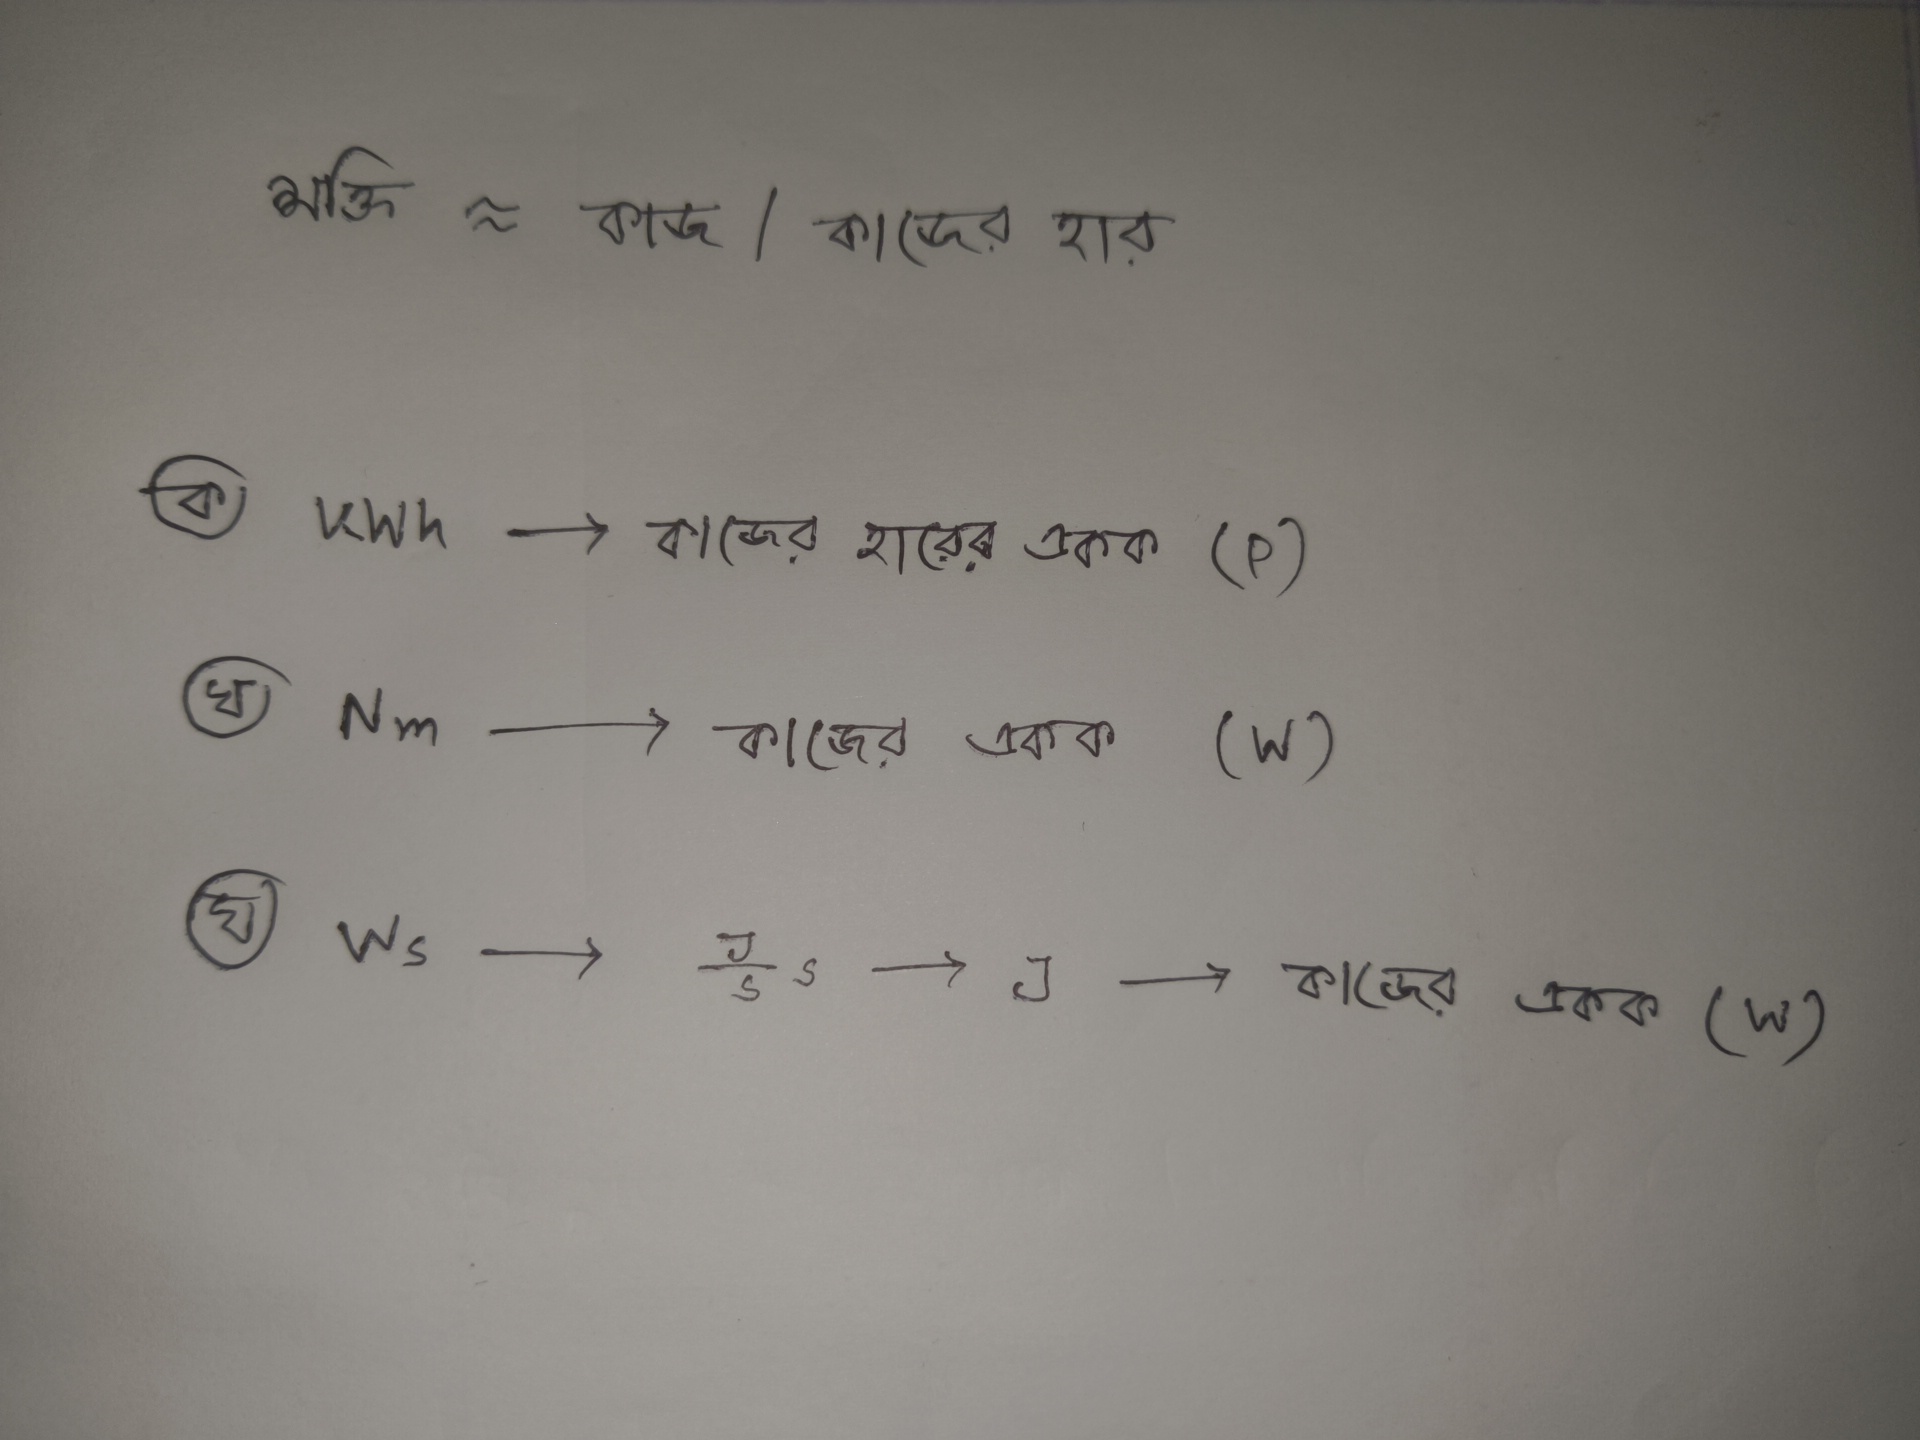 শক্তি ≈ কাজ / কাজের হার
ক KWh → কাজের হারের একক (P)
খ Nm → কাজের একক (W)
ঘ Ws → J/s s → J → কাজের একক (W)